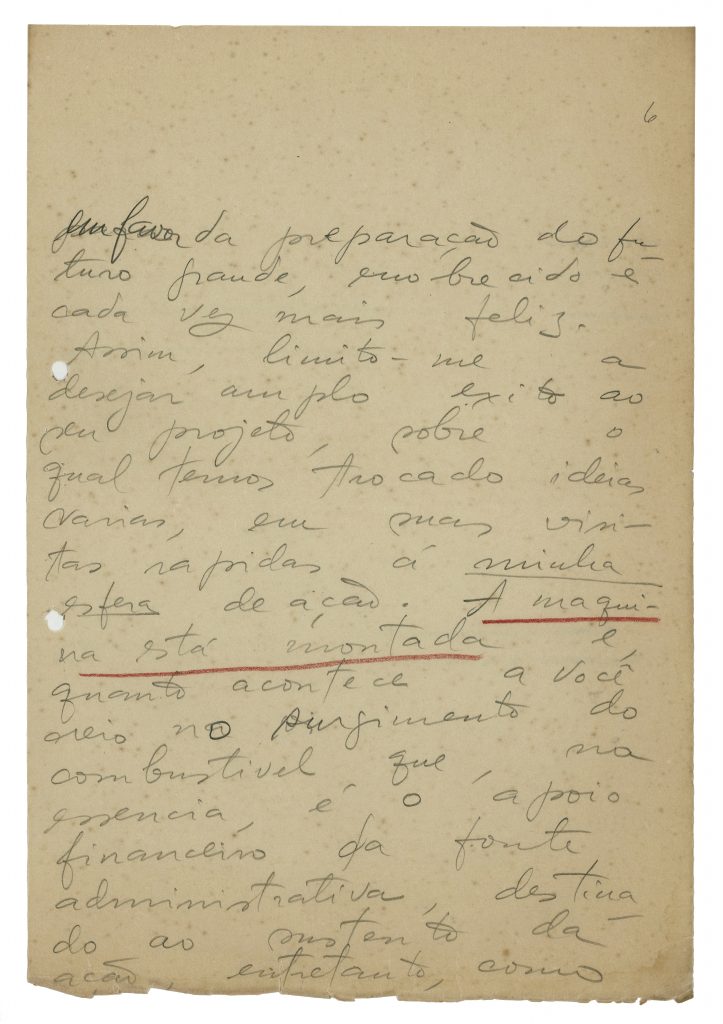 6
em favor da preparação do fu-
turo grande, enobrecido e
cada vez mais feliz.
Assim, limito-me a
desejar amplo exito ao
seu projeto, sobre o
qual temos trocado ideias
varias, em suas visi-
tas rapidas á minha
esfera de ação. A maqui-
na está montada e,
quanto acontece a você
creio no surgimento do
combustivel que, na
essencia, é o apoio
financeiro da fonte
administrativa, destina-
do ao sustento da
ação, entretanto, como